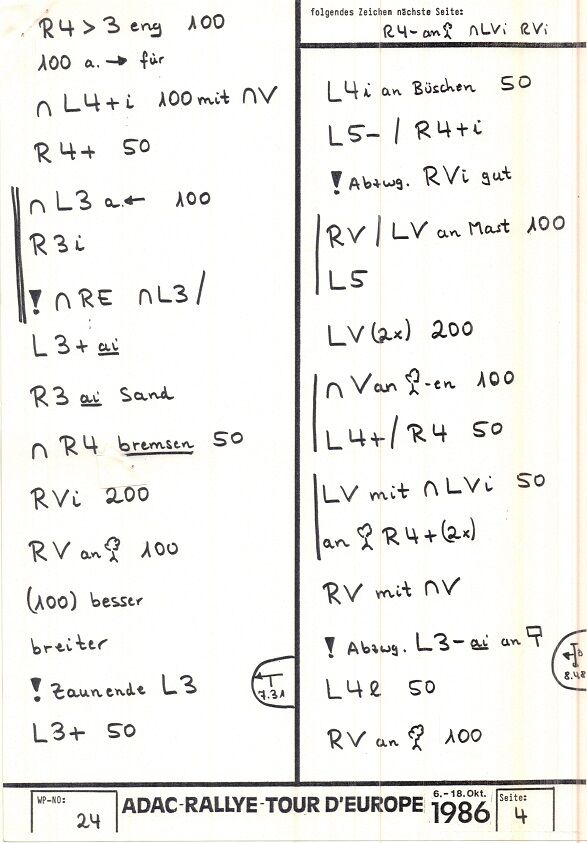 R4 > 3 eng 100
100 a. → für
∩ L4+i 100 mit ∩V
R4+ 50
∩ L3 a.← 100
R3i
! ∩ RE ∩L3 /
L3+ ai
R3 ai Sand
∩ R4 bremsen 50
RVi 200
RV an 100
(100) besser
breiter
! Zaunende L3
7.31
L3+ 50
folgendes Zeichen nächste Seite:
R4- an ∩LVi RVi
L4i an Büschen 50
L5- / R4+i
! Abzwg. RVi gut
RV / LV an Mast 100
L5
LV (2x) 200
∩ V an -en 100
L4+ / R4 50
LV mit ∩ LVi 50
an R4+ (2x)
RV mit ∩V
! Abzwg. L3- ai an
8.48
L4l 50
RV an 100
WP-NO:
24
ADAC-RALLYE-TOUR D'EUROPE
6.-18.Okt.
1986
Seite:
4